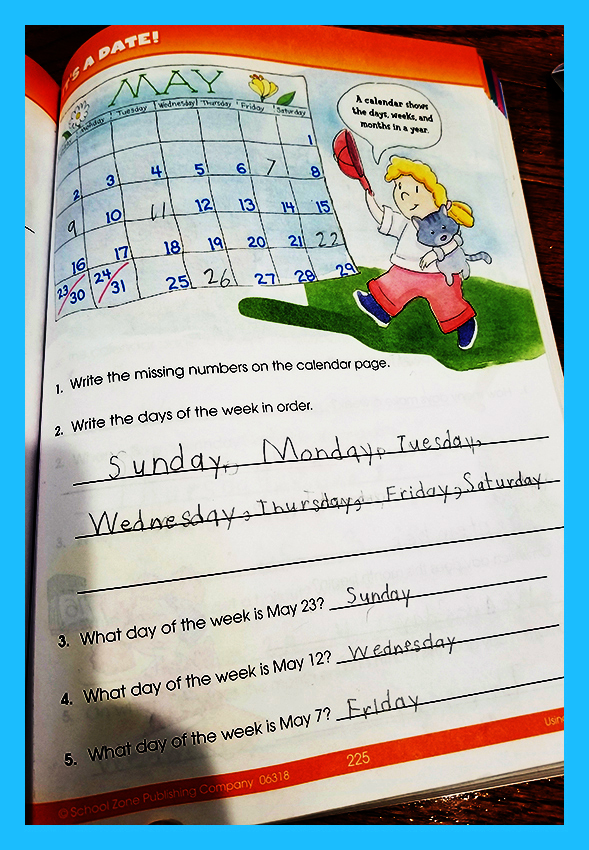 IT'S A DATE!
MAY
Monday Tuesday Wednesday Thursday Friday Saturday
1
2 3 4 5 6 7 8
9 10 11 12 13 14 15
16 17 18 19 20 21 22
23/30 24/31 25 26 27 28 29
A calendar shows
the days, weeks, and
months in a year.
1. Write the missing numbers on the calendar page.
2. Write the days of the week in order.
Sunday, Monday, Tuesday,
Wednesday, Thursday, Friday, Saturday
3. What day of the week is May 23? Sunday
4. What day of the week is May 12? Wednesday
5. What day of the week is May 7? Friday
© School Zone Publishing Company 06318 225